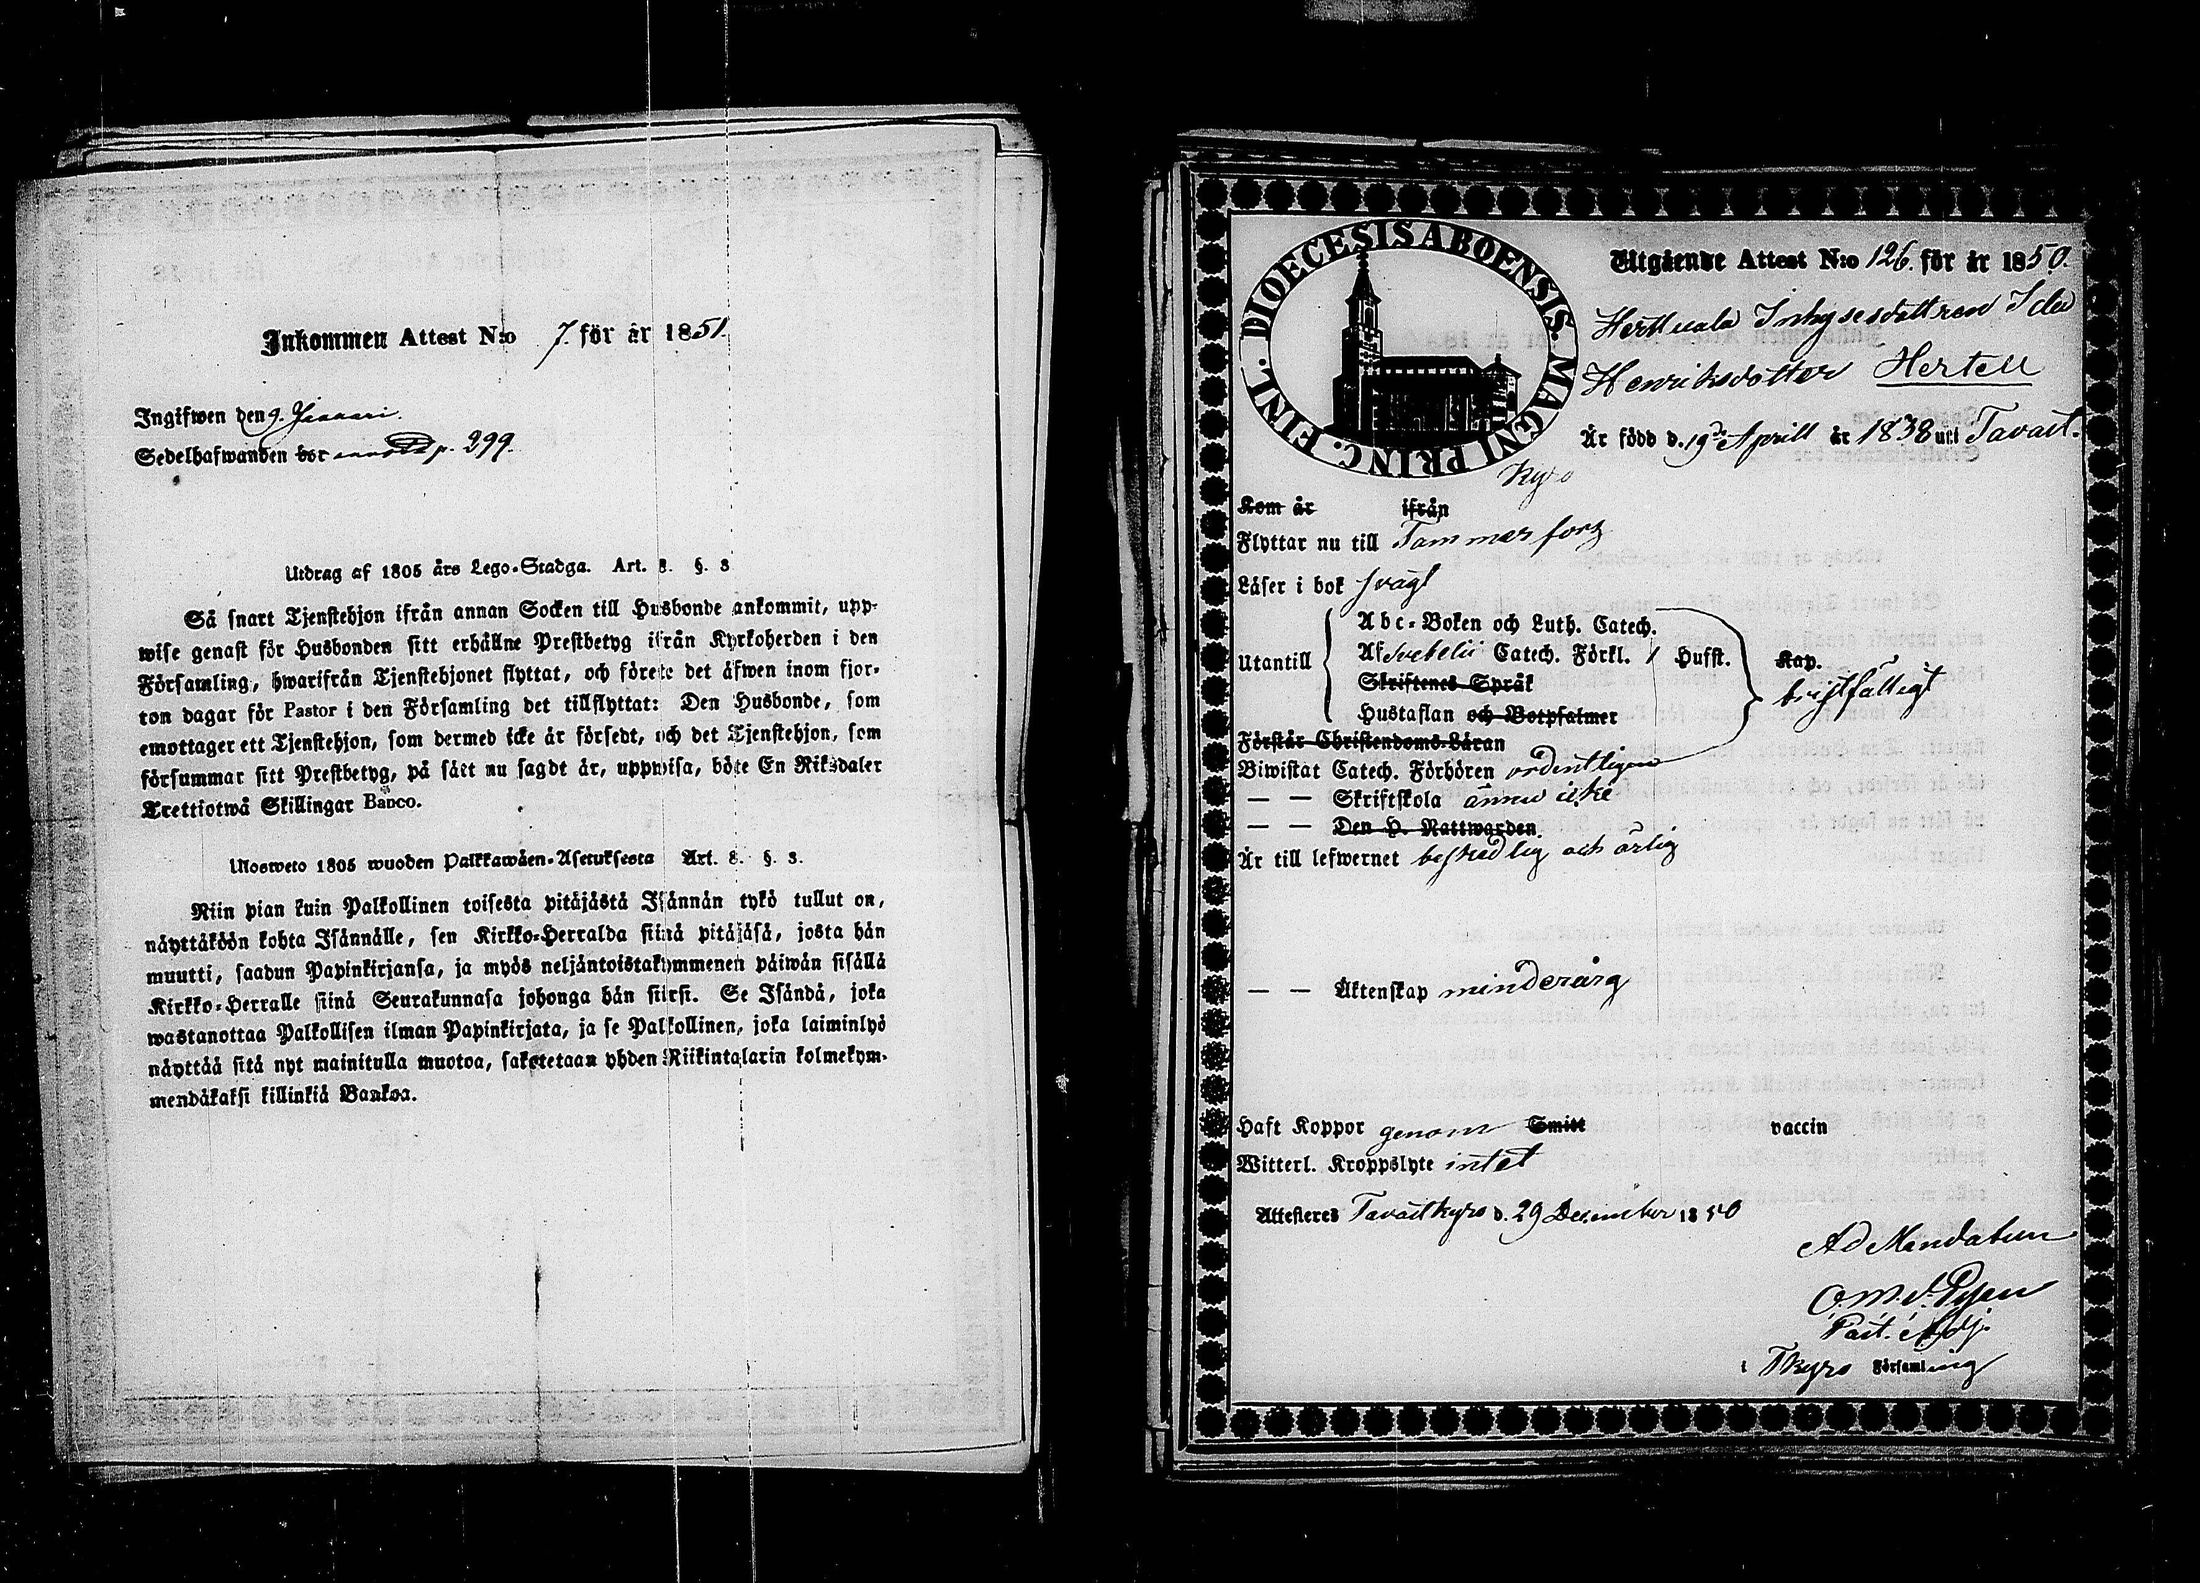 Inkommen Attest N:o 7. för år 1851.
Ingifwen den 9. Januari.
Sedelhafwanden bor p. 299.
Utdrag af 1805 års Lego-Stadga. Art. 8. §. 3
Så snart Tjenstehjon ifrån annan Socken till Husbonde ankommit, upp-
wise genast för Husbonden sitt erhållne Prestbetyg ifrån Kyrkoherden i den
Församling, hwarifrån Tjenstehjonet flyttat, och förete det äfwen inom fjor-
ton dagar för Pastor i den Församling det tillflyttat: Den Husbonde, som
emottager ett Tjenstehjon, som dermed icke är försedt, och det Tjenstehjon, som
försummar sitt Prestbetyg, på sätt nu sagdt är, uppwisa, böte En Riksdaler
Trettiotwå Skillingar Banco.
Ulosweto 1805 wuoden Palkkawäen-Asetuksesta Art. 8. §. 3.
Niin pian kuin Palkollinen toisesta pitäjästä Isännän tykö tullut on,
näyttäköön kohta Isännälle, sen Kirkko-Herralda siinä pitäjäsä, josta hän
muutti, saadun Papinkirjansa, ja myös neljäntoistakymmenen päiwän sisällä
Kirkko-Herralle siinä Seurakunnasa johonga hän siirsi. Se Isändä, joka
wastanottaa Palkollisen ilman Papinkirjata, ja se Palkollinen, joka laiminlyö
näyttää sitä nyt mainitulla muotoa, sakotetaan yhden Riikintalarin kolmekym-
mendäkaksi killinkiä Bankoa.
DIOECESIS ABOENSIS. MAGNI PRINC. FINL.
Utgående Attest N:o 126. för år 1850.
Herttuala Inhysesdottren Ida
Henriksdotter Hertell
Är född d. 19de Aprill år 1838 uti Tavast-
kyro
Kom år ifrån
Flyttar nu till Tammerfors
Läser i bok svagt
Utantill
Abc-Boken och Luth. Catech.
Af Svebelii Catech. Förkl. 1 Hufst. Kap.
Skriftenes Språk
bristfälligt
Hustaflan och Botpsalmer
Förstår Christendoms-Läran
Biwistat Catech. Förhören ordentligen
— — Skriftskola ännu icke
— — Den H. Nattwarden
Är till lefwernet beskedlig och ärlig
— — Äktenskap minderårg
Haft Koppor genom Smitt vaccin
Witterl. Kroppslyte intet
Attesteres Tavastkyro d. 29 December 1850
Ad Mandatum
Past. Adj.
i Tkyro Församling